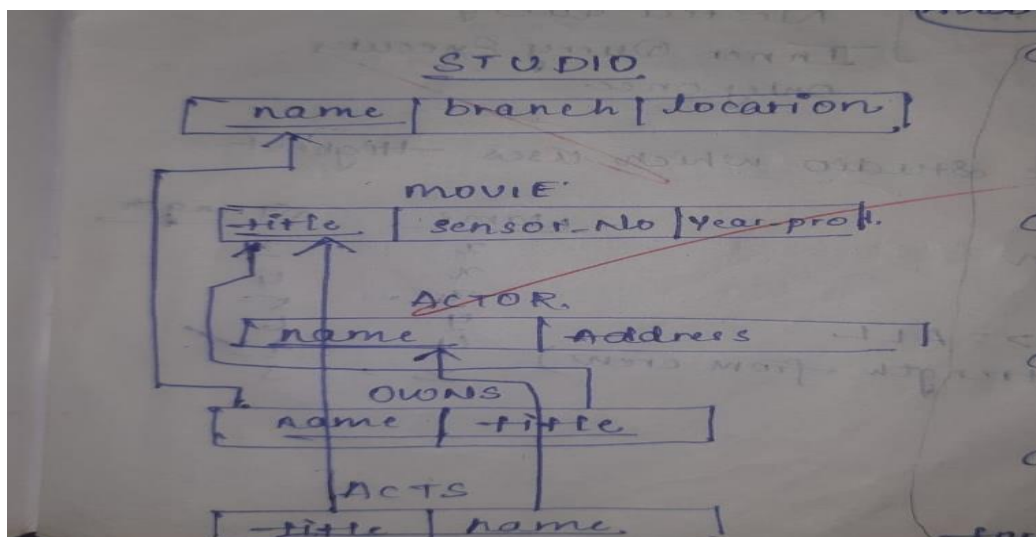 STUDIO
name branch location
MOVIE
title sensor_No year_prof.
ACTOR.
name Address
OWNS
name title
ACTS
title name.